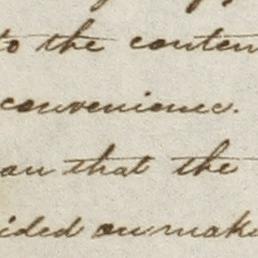 to the conten
convenience.
an that the
ided on mak